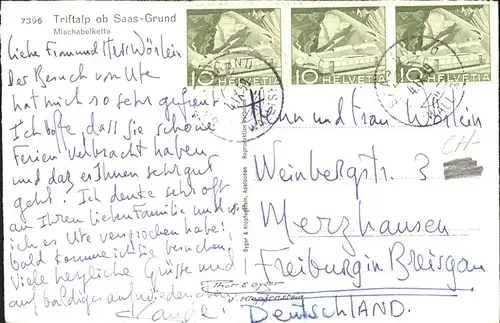 7396 Triftalp ob Saas-Grund
Mischabelkette
Liebe Frau und Herr Wörlein
Der Besuch von Ute
hat mich so sehr gefreut
Ich hoffe, dass sie schöne
Ferien verbracht haben
und dass es Ihnen sehr gut
geht! Ich denke sehr oft
an Ihren lieben Familie und wie
ich es Ute versprochen habe,
bald komme ich sie besuchen.
Viele herzliche Grüsse und
auf baldiges aufwiedersehen
10 HELVETIA
10 HELVETIA
10 HELVETIA
Herrn und Frau Wörlein
CH-
Weinbergstr. 3
Merzhausen
Freiburg in Breisgau
Deutschland.
Thor E. Gyger
u. Klopfenstein
Gyger & Klopfenstein, Adelboden